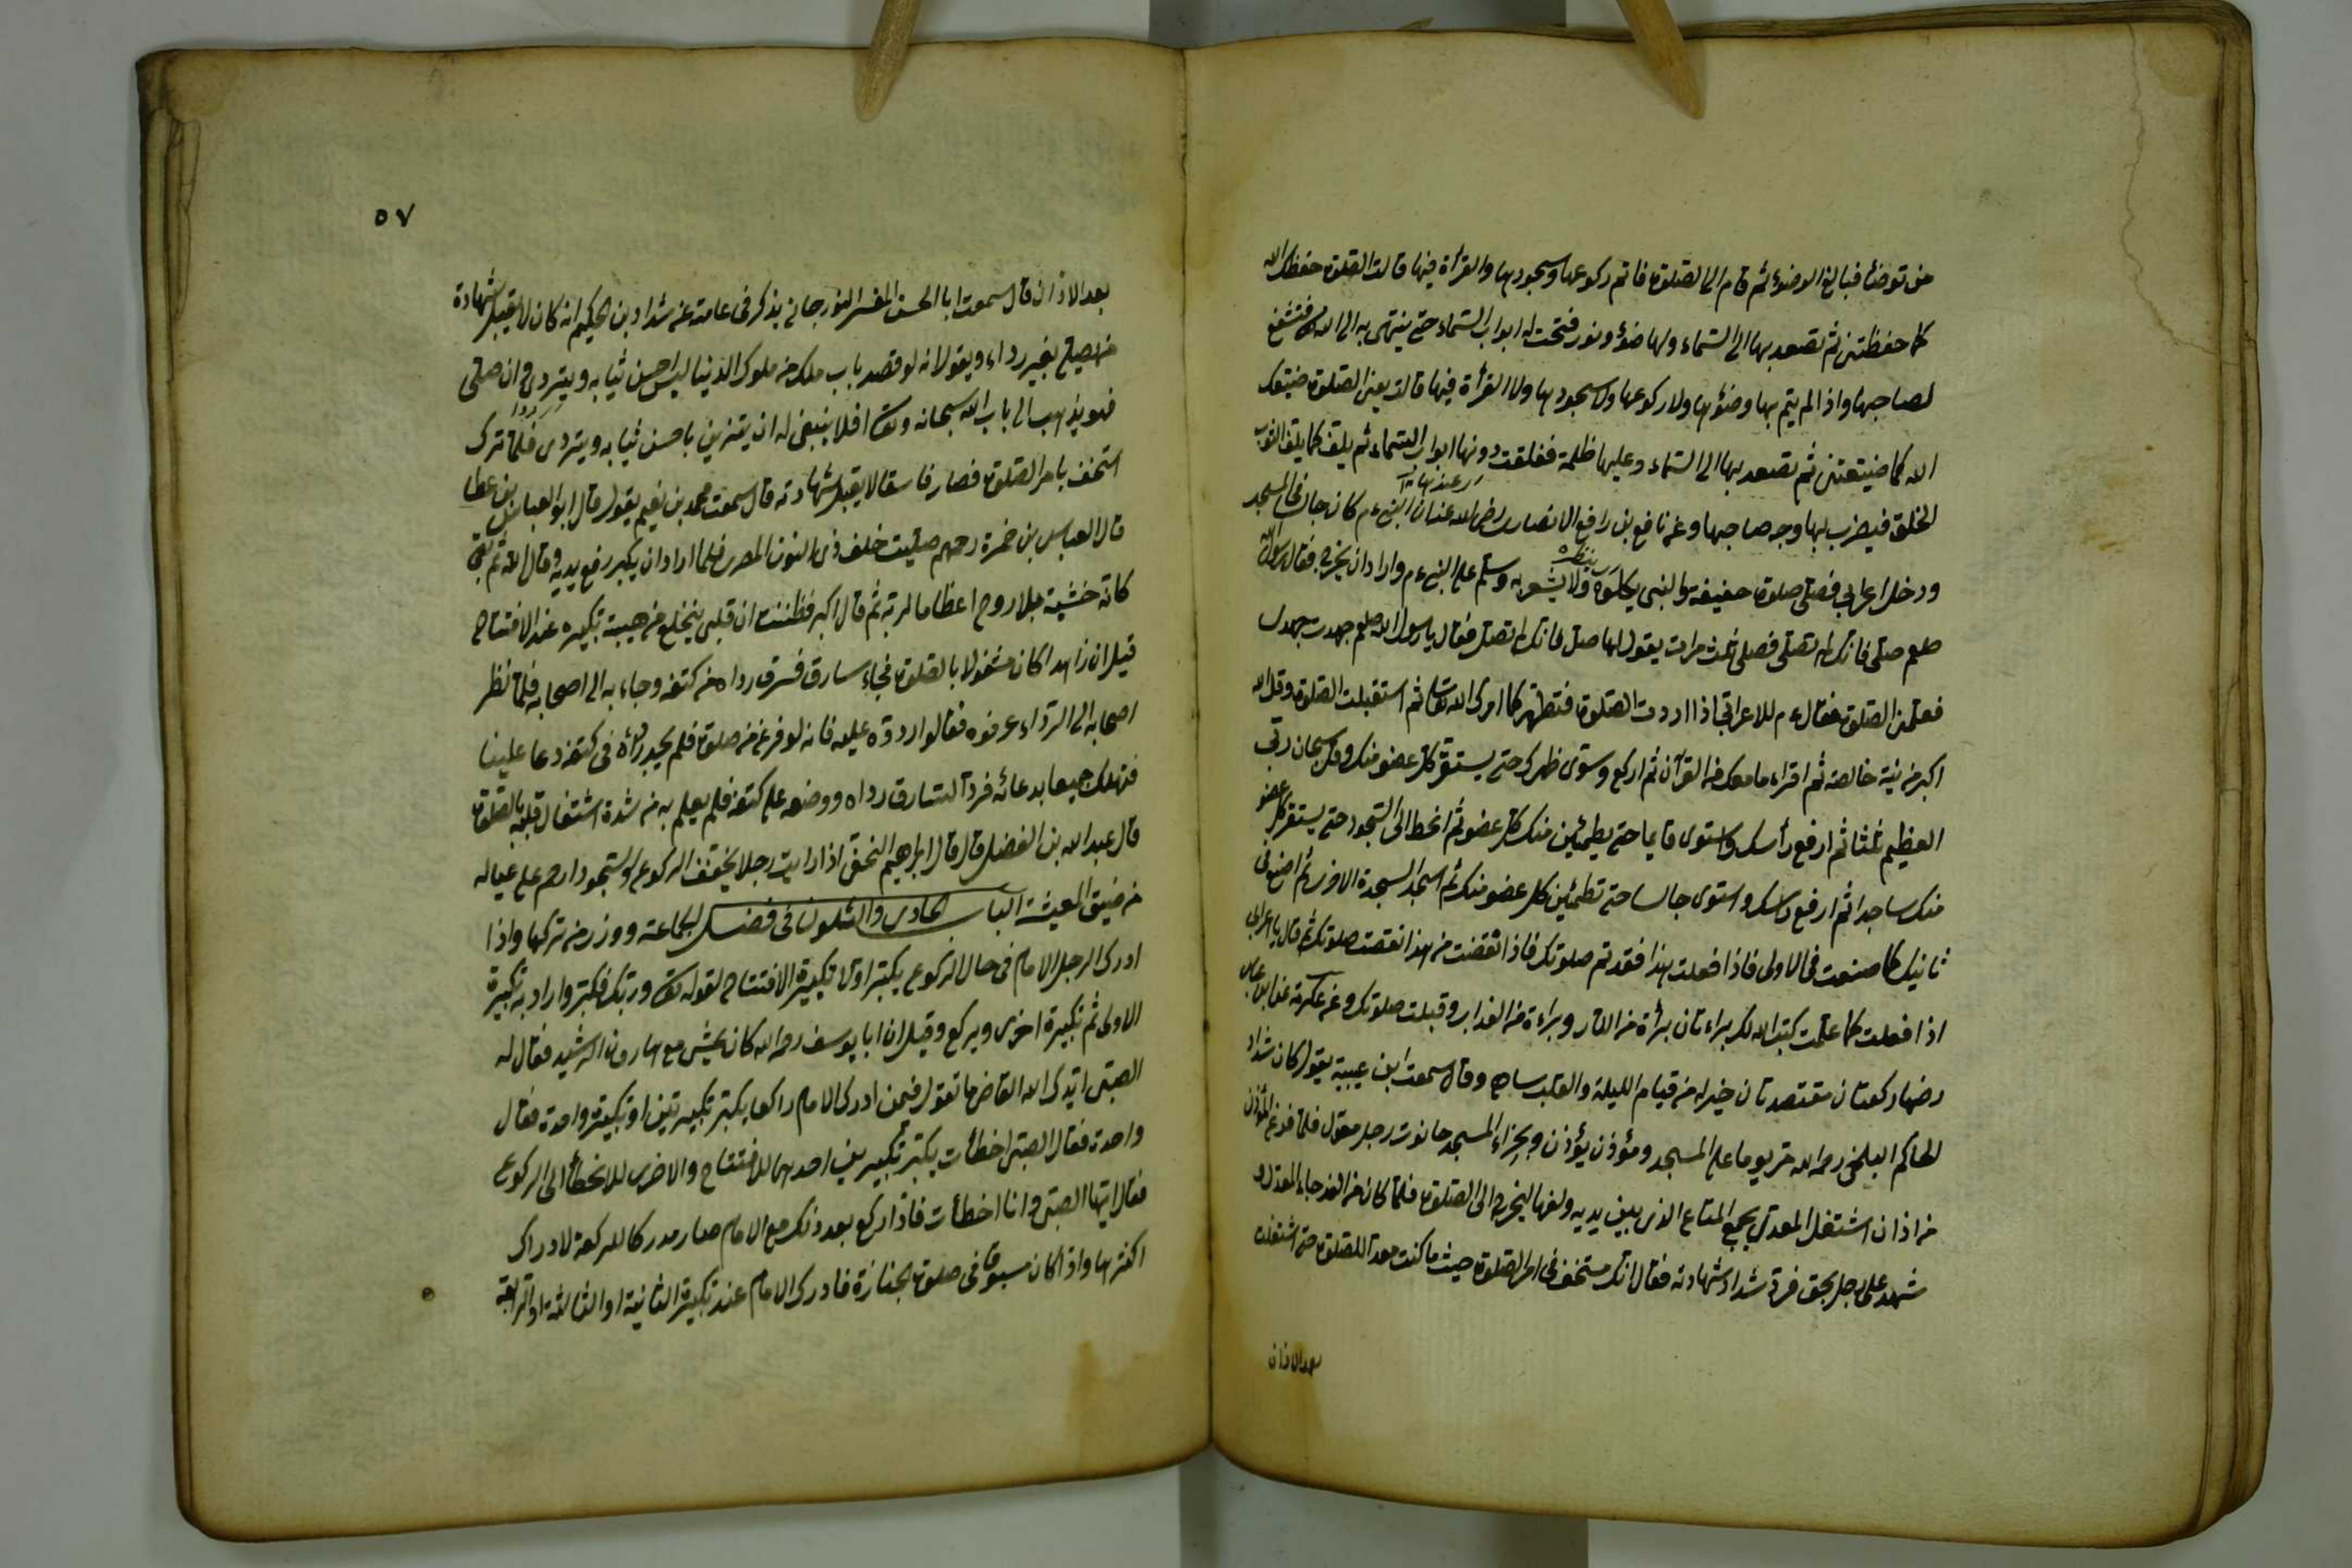 من توضأ فبالغ الوضوء ثم قام الى الصلوة فاتم ركوعها وسجودها والقرأة فيها قالت الصلوة حفظك الله
كما حفظتنى ثم تصعد بها الى السماء ولها ضوء ونور فتحت له ابواب السماء حتى ينتهى به الى الله فتشفع
لصاحبها واذا لم يتم بها وضوئها ولا ركوعها ولا سجودها ولا القرأة فيها قالت يعنى الصلوة ضيعك
الله كما ضيعتنى ثم تصعد بها الى السماء وعليها ظلمة فغلقت دونها ابواب السماء ثم يلف كما يلف الثوب
الخلق فيضرب بها وجه صاحبها وعن نافع بن رافع الانصارى رضى الله عنه ان النبى ءم كان جالس فى المسجد
ودخل اعرابى فصلى صلوة خفيفة والنبى ينظره ولا يشعر به وسلم على النبى ءم واراد ان يخرج فقال رسول الله
صلعم صلى فانك لم تصلى فصلى ثلث مرات يقول لها صل فانك لم تصل فقال يا رسول الله صلعم جهدت جهدى
فعلمنى الصلوة فقال ءم للاعرابى اذا اردت الصلوة فتطهر كما امرك الله تعالى ثم استقبلت الصلوة وقل الله
اكبر من نية خالصة ثم اقراء ما معك من القرآن ثم اركع وسوى ظهرك حتى يستقر كل عضو منك وقل سبحان ربى
العظيم ثلثا ثم ارفع رأسك واستوى قايما حتى يطمئين منك كل عضو ثم انحط الى السجود حتى يستقر كل عضو
منك ساجدا ثم ارفع رأسك واستوى جالسا حتى تطمئين كل عضو منك ثم اسجد السجدة الاخرى ثم اصنع فى
ثانيك كما صنعت فى الاولى فاذا فعلت هذا فقد تم صلوتك فاذا نقضت من هذا نقصت صلوتك ثم قال يا اعرابى
اذا فعلت كما علمت كتب الله لك براءتان برأة من النار وبراءة من العذاب وقبلت صلوتك وعن عكرمة عن ابن عباس
رضها ركعتان مقتصدتان خير له من قيام الليلة والقلب ساه وقال سمعت ابن عيينة يقول كان شداد
الحاكم البلخى رحمه الله مر يوما على المسجد ومؤذن يؤذن وبحزاء المسجد حانوت رجل معدل فلما فرغ المؤذن
من اذان اشتغل المعدل بجمع المتاع الذى بين يديه ولفها ليخرج الى الصلوة فلما كان من الغد جاء المعدل و
شهد على رجل بحق فرد شداد شهادته فقال انك مستخف فى امر الصلوة حيث ما كنت معد للصلوة حتى اشتغلت
بعد الاذان
٥٧
بعد الاذان قال سمعت ابا الحسن المفسر النورجانى يذكر فى عامته عن شداد بن الحكيم انه كان لا يقبل شهادة
من يصلى بغير رداء ويقول انه لو قصد باب ملك من ملوك الدنيا ليلبس احسن ثيابه ويتردى وان صلى
فهو يذهب الى باب الله سبحانه وتعالى افلا ينبغى له ان يتزين باحسن ثيابه ويتردى فلما ترك
استخف بامر الصلوة فصار فاسقا لا يقبل شهادته قال سمعت محمد بن نعيم يقول قال ابو العباس بن عطا
قال العباس بن حمزة رحمهم صليت خلف ذى النون المصرى فلما اراد ان يكبر رفع يديه وقال الله ثم بقى
كانه خشبة بلا روح اعظاما لربه ثم قال اكبر فظننت ان قلبى ينخلع من هيبة تكبيره عند الافتتاح
قيل ان زاهدا كان مشغولا بالصلوة فجاء سارق فسرق رداه من كتفه وجاء به الى اصحابه فلما نظر
اصحابه الى الرداء عرفوه فقالوا اردده عليه فانه لو فرغ من صلوة فلم يجد رداه فى كتفه دعا علينا
فنهلك جميعا بدعائه فرد السارق رداه ووضعه على كتفه فلم يعلم به من شدة اشتغال قلبه بالصلوة
قال عبد الله بن الفضل قال قال ابراهيم النخعى اذا رايت رجلا يخفف الركوع والسجود ارحم على عياله
من ضيق المعيشة الباب الحادى والثلثون فى فضل الجماعة ووزر من تركها واذا
ادرك الرجل الامام فى حال الركوع يكبر اولا تكبيرة الافتتاح لقوله تعالى وربك فكبر واراد به تكبيرة
الاولى ثم تكبيرة اخرى ويركع وقيل ان ابا يوسف رحمه الله كان يمشى مع هارون الرشيد فقال له
الصبى ايدك الله القاضى ما تقول فيمن ادرك الامام راكعا يكبر تكبيرتين او تكبيرة واحدة فقال
واحدة فقال الصبى اخطأت يكبر تكبيرين احدهما للافتتاح والاخرى للانحطاط الى الركوع
فقال ايها الصبى وانا اخطأت فاذا ركع بعد ذلك مع الامام صار مدركا للركعة لادراك
اكثرها واذا كان مسبوقا فى صلوة الجنازة فادرك الامام عند تكبيرة الثانية او الثالثة او الرابعة